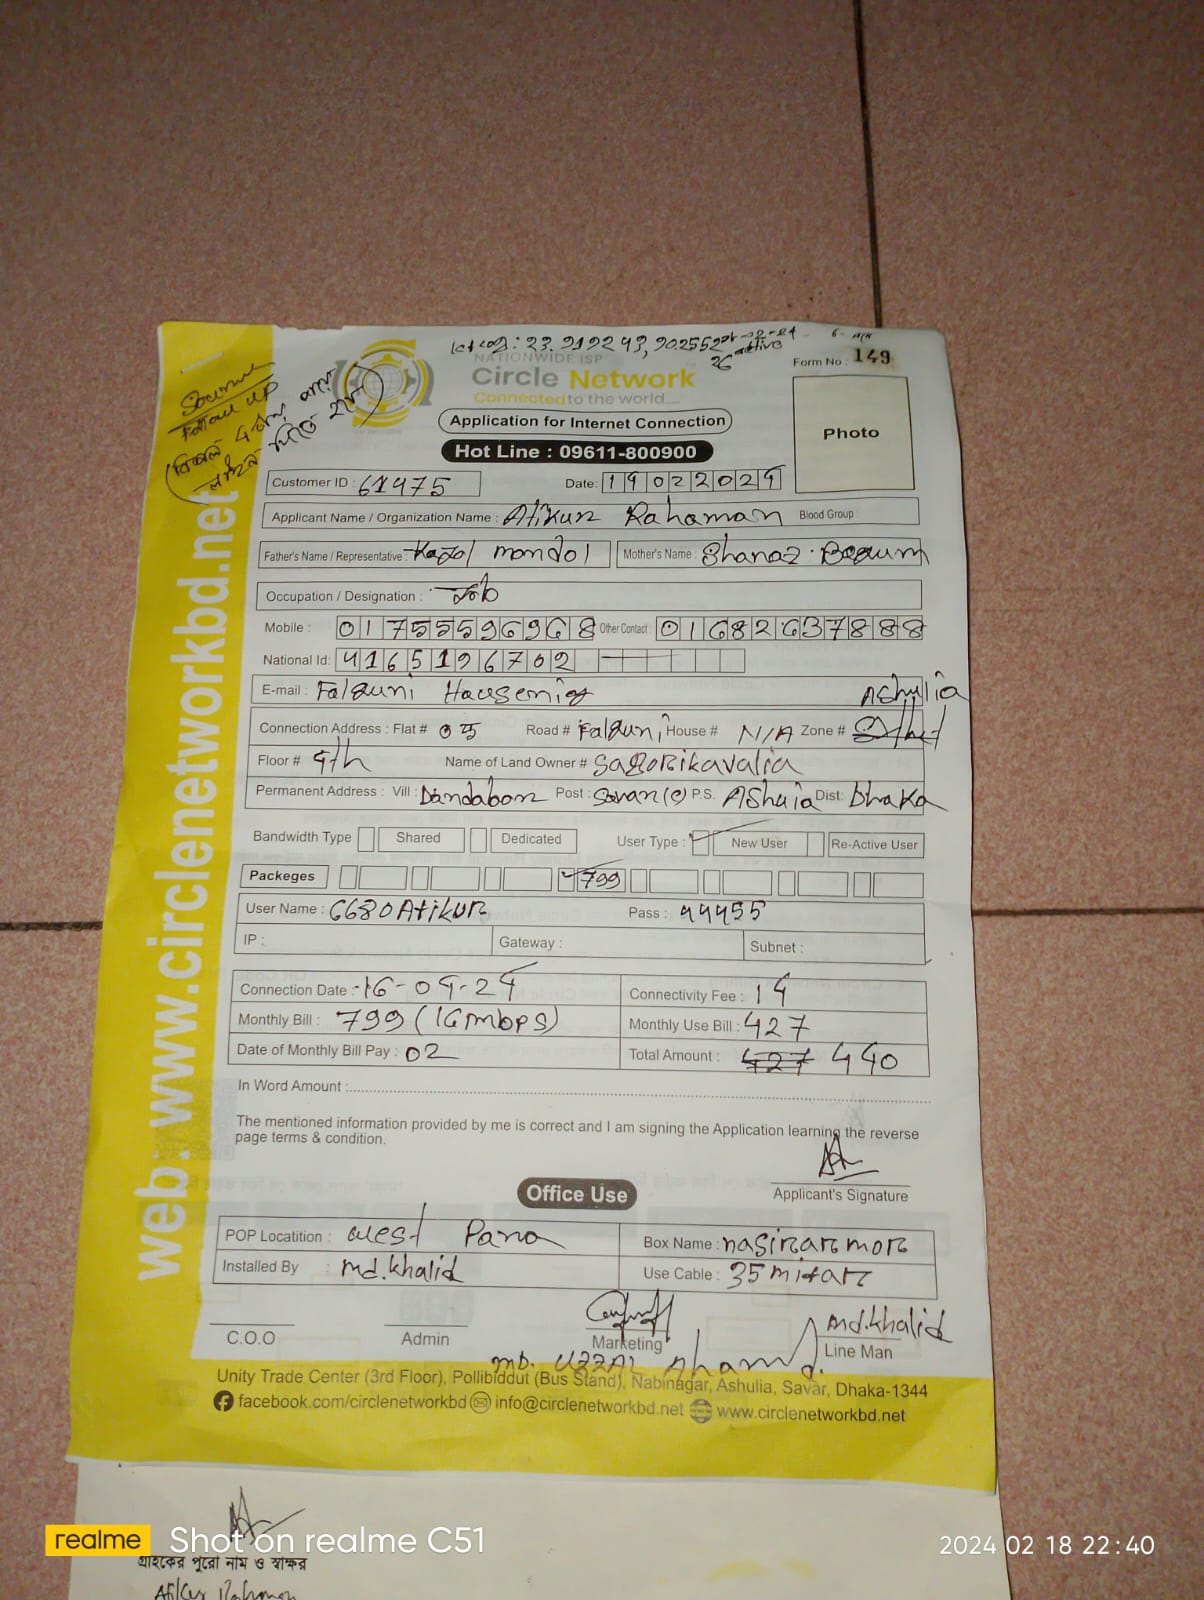 NATIONWIDE ISP
Circle Network
Connected to the world....
Form No : 149
Application for Internet Connection
Photo
Hot Line : 09611-800900
Follow UP
Customer ID : 61475
Date: 19022024
Applicant Name / Organization Name : Atikur Rahaman Blood Group
Father's Name / Representative : Kazol mondol
Mother's Name : Shanaz Begum
Occupation / Designation : Job
Mobile : 01755596968 Other Contact 01682637888
National Id: 4165196702
E-mail : Falguni Hausemig Ashulia
Connection Address : Flat # 05 Road # Falguni House # N/A Zone #
Floor # 4th Name of Land Owner # Sagorikavalia
Permanent Address : Vill : Dandabor Post : Savar(c) P.S. AShuia Dist: Dhaka
Bandwidth Type Shared Dedicated User Type : New User Re-Active User
Packeges 799
User Name : 6680Atikur Pass : 44455
IP : Gateway : Subnet :
Connection Date : 16-04-24 Connectivity Fee : 14
Monthly Bill : 799 (16mbps) Monthly Use Bill : 427
Date of Monthly Bill Pay : 02 Total Amount : 427 440
In Word Amount :
The mentioned information provided by me is correct and I am signing the Application learning the reverse
page terms & condition.
Applicant's Signature
Office Use
POP Locatition : West Para Box Name : nasirarmor
Installed By : md.khalid Use Cable : 35mitar
C.O.O Admin Marketing md.khalid
Line Man
md. UZZAL Ahamd.
Unity Trade Center (3rd Floor), Pollibiddut (Bus Stand), Nabinagar, Ashulia, Savar, Dhaka-1344
facebook.com/circlenetworkbd info@circlenetworkbd.net www.circlenetworkbd.net
web.www.circlenetworkbd.net
গ্রাহকের পুরো নাম ও স্বাক্ষর
Atikur Rahaman
realme Shot on realme C51
2024 02 18 22:40